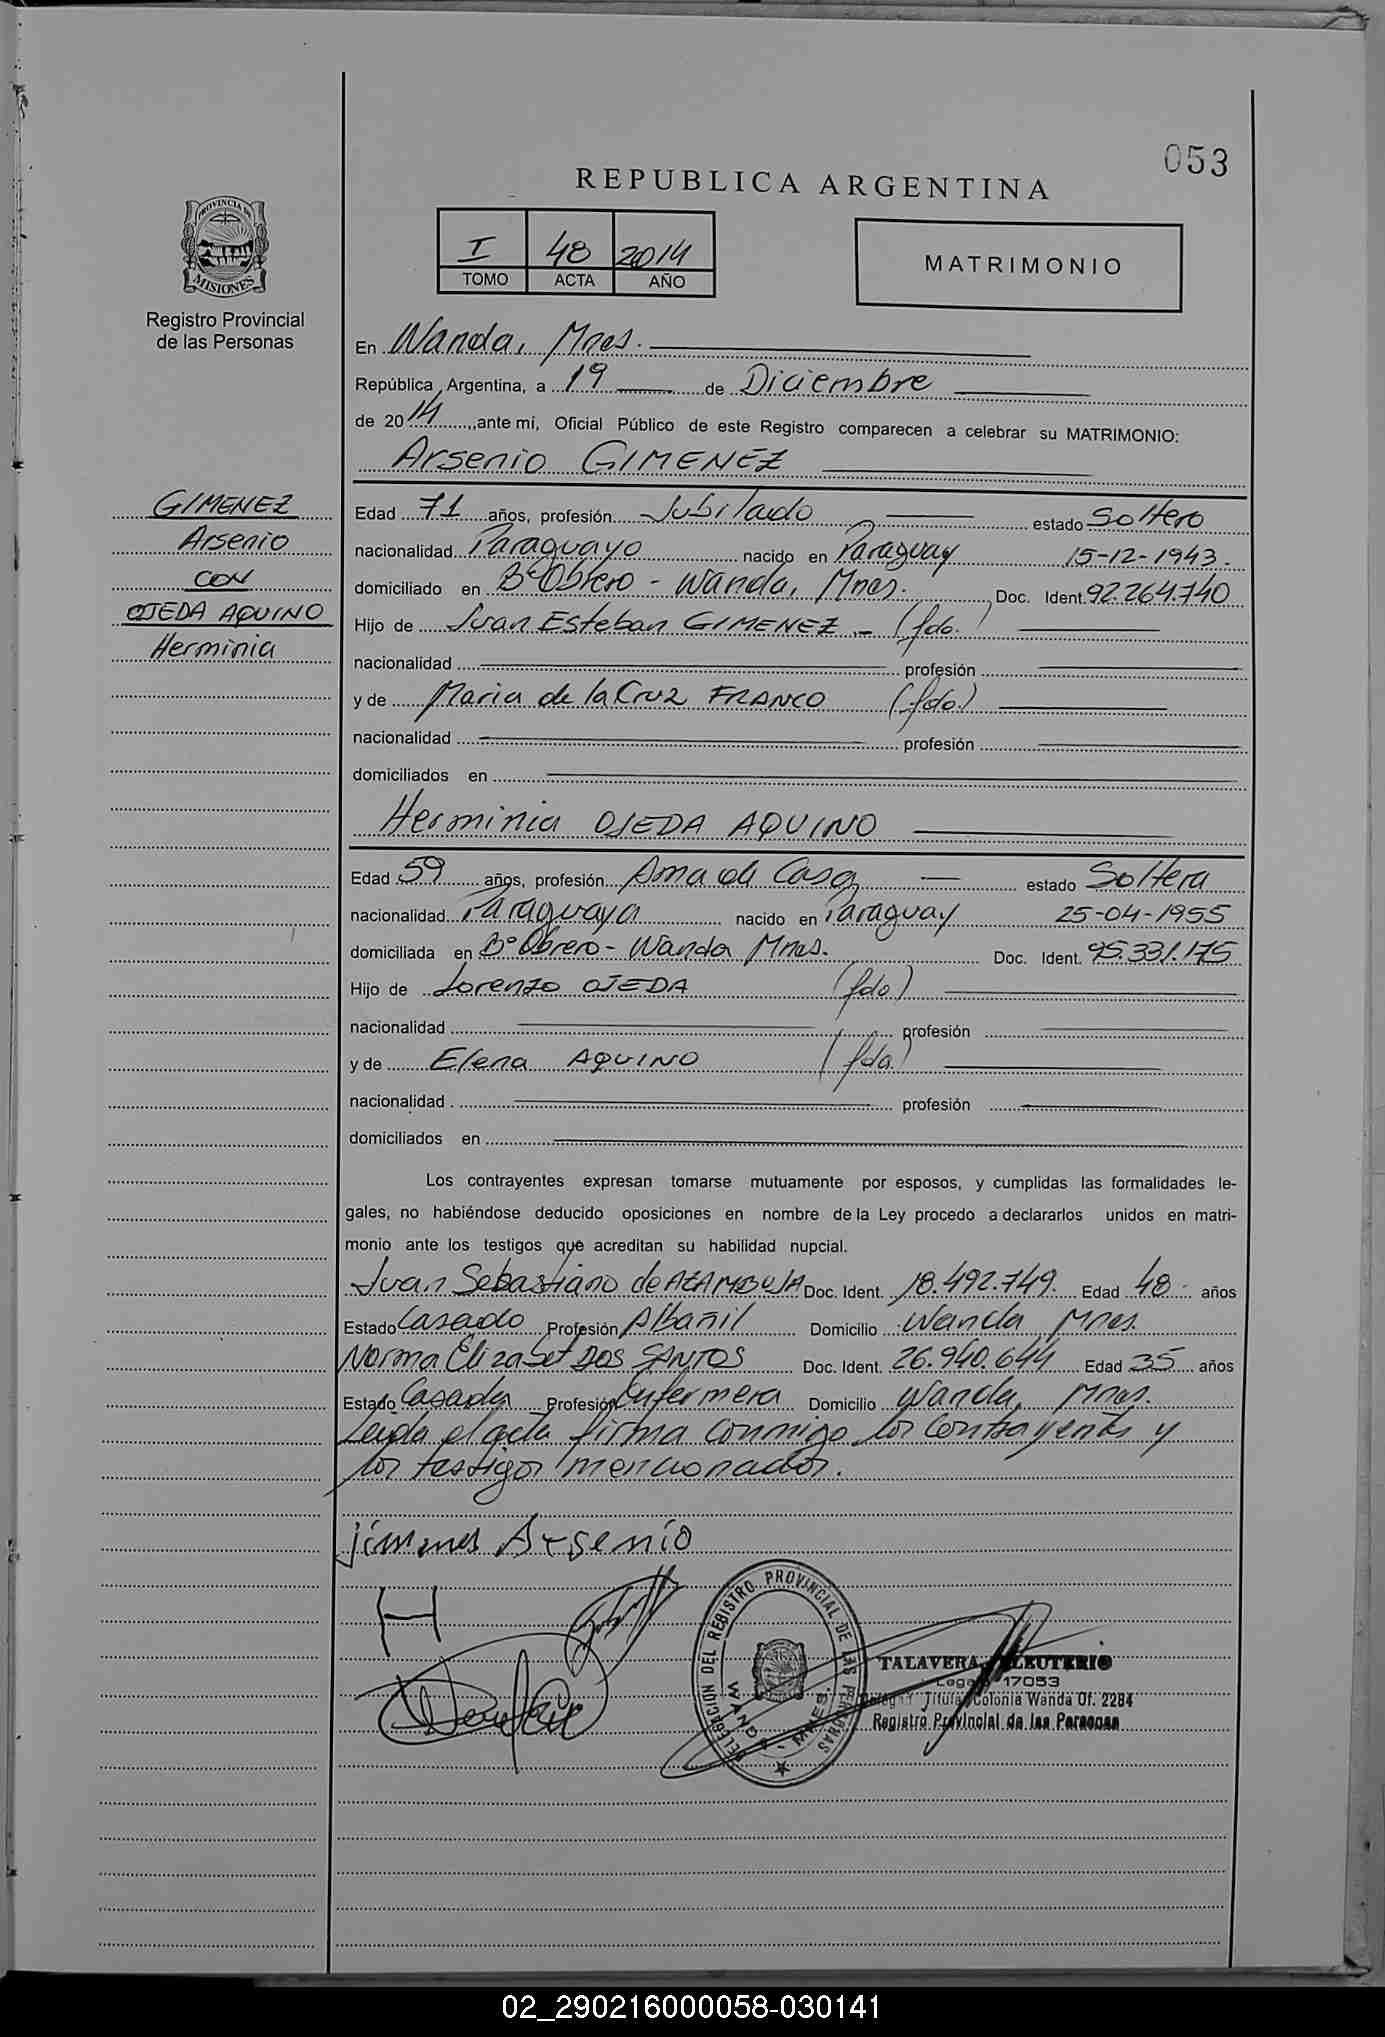 053
REPUBLICA ARGENTINA
PROVINCIA DE
MISIONES
Registro Provincial
de las Personas
I 48 2014
TOMO ACTA AÑO
MATRIMONIO
En Wanda, Mnes.
República Argentina, a 19 de Diciembre
de 2014, ante mí, Oficial Público de este Registro comparecen a celebrar su MATRIMONIO:
Arsenio GIMENEZ
GIMENEZ
Arsenio
CON
OJEDA AQUINO
Herminia
Edad 71 años, profesión Jubilado estado Soltero
nacionalidad Paraguayo nacido en Paraguay 15-12-1943.
domiciliado en Bº Obrero - Wanda, Mnes. Doc. Ident. 92.264.740
Hijo de Juan Esteban GIMENEZ - (fdo.)
nacionalidad profesión
y de Maria de la Cruz FRANCO (fdo.)
nacionalidad profesión
domiciliados en
Herminia OJEDA AQUINO
Edad 59 años, profesión Ama de Casa estado Soltera
nacionalidad Paraguaya nacido en Paraguay 25-04-1955
domiciliada en Bº Obrero - Wanda Mnes. Doc. Ident. 95.331.175
Hijo de Lorenzo OJEDA (fdo)
nacionalidad profesión
y de Elena AQUINO (fda.)
nacionalidad profesión
domiciliados en
Los contrayentes expresan tomarse mutuamente por esposos, y cumplidas las formalidades le-
gales, no habiéndose deducido oposiciones en nombre de la Ley procedo a declararlos unidos en matri-
monio ante los testigos que acreditan su habilidad nupcial.
Juan Sebastiano de AZAMBUJA Doc. Ident. 18.492.749. Edad 48 años
Estado Casado Profesión Albañil Domicilio Wanda Mnes.
Norma Elizabet DOS SANTOS Doc. Ident. 26.940.644 Edad 35 años
Estado Casada Profesión Enfermera Domicilio Wanda, Mnes.
Leida el acta firma conmigo los contrayentes y
los testigos mencionados.
jimenes Arsenio
H
DELEGACION DEL REGISTRO PROVINCIAL DE LAS PERSONAS
WANDA - MNES.
TALAVERA ELEUTERIO
Legajo 17053
Delegad Titular Colonia Wanda Of. 2284
Registro Provincial de las Personas
02_290216000058-030141